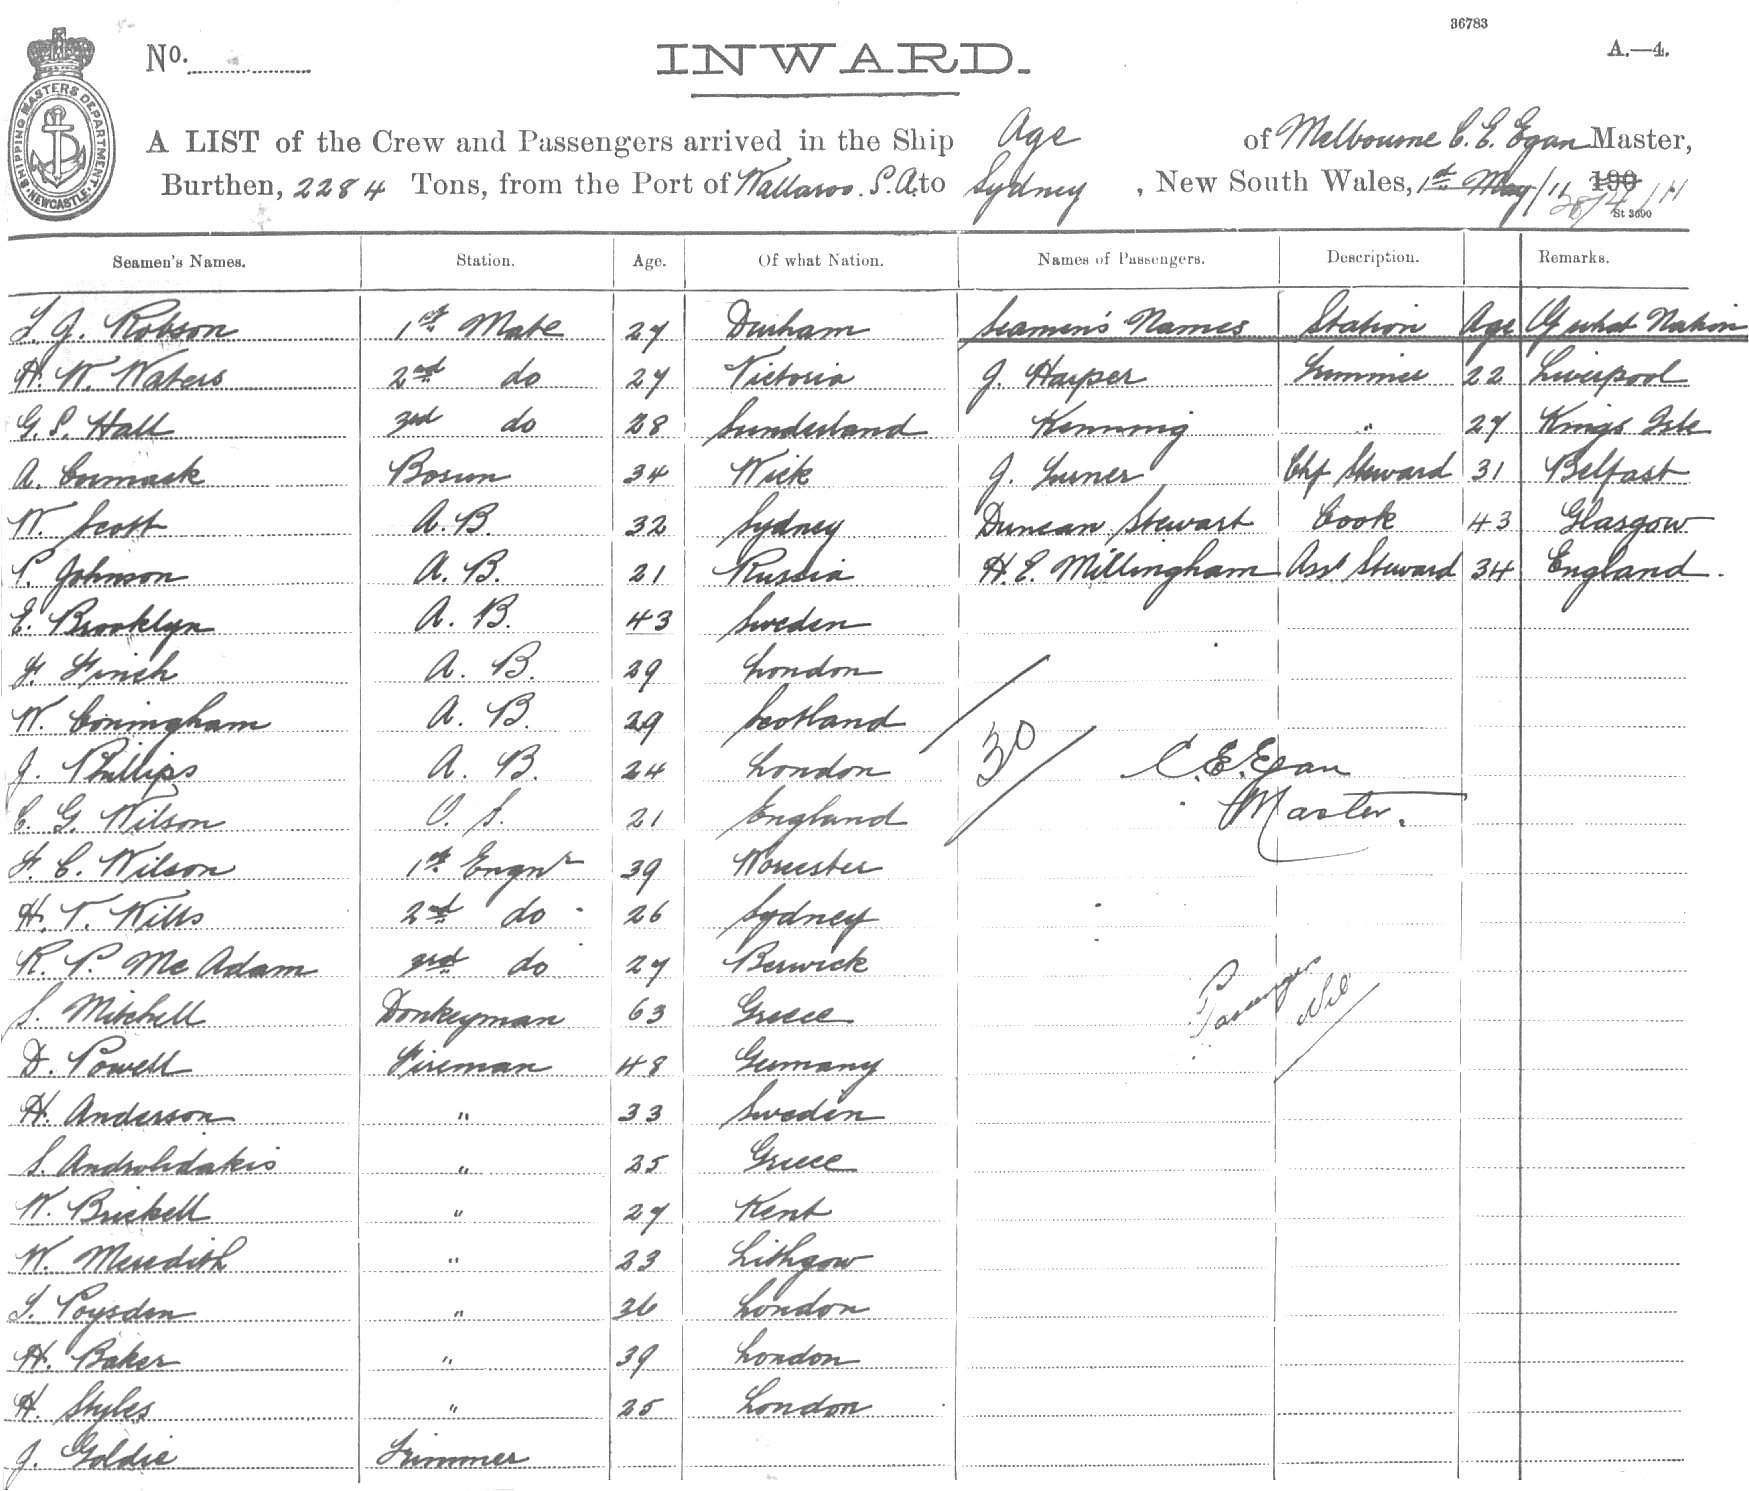 36783
No.
INWARD.
A.—4.
SHIPPING MASTERS DEPARTMENT NEWCASTLE
A LIST of the Crew and Passengers arrived in the Ship Age of Melbourne C. E. Egan Master,
Burthen, 2284 Tons, from the Port of Wallaroo. S.A. to Sydney, New South Wales, 1st May/11 190 28/4/11
St 3600
Seamen's Names. Station. Age. Of what Nation. Names of Passengers. Description. Remarks.
1st Mate 27 Durham Seamen's Names Station Age Of what Nation
H. W. Waters 2nd do 27 Victoria J. Harper Trimmer 22 Liverpool
G. S. Hall 3rd do 28 Sunderland Kenning " 27 Kings Isle
A. Cormack Bosun 34 Wick J. Turner Chf Steward 31 Belfast
W. Scott A.B. 32 Sydney Duncan Stewart Cook 43 Glasgow
P. Johnson A.B. 21 Russia H. E. Millingham Asst Steward 34 England.
E. Brooklyn A. B. 43 Sweden
F. Finch A. B. 29 London
W. Coningham A. B. 29 Scotland
30
J. Phillips A. B. 24 London C. E. Egan
C. G. Wilson O. S. 21 England Master.
F. C. Wilson 1st Engnr 39 Worcester
H. T. Wills 2nd do 26 Sydney
R. P. McAdam 3rd do 27 Berwick
S. Mitchell Donkeyman 63 Greece Passengers Nil
D. Powell Fireman 48 Germany
H. Anderson " 33 Sweden
S. Androlidakis " 25 Greece
W. Brickell " 27 Kent
W. Meredith " 23 Lithgow
Poysden " 36 London
H. Baker " 39 London
H. Styles " 25 London
J. Goldie Trimmer